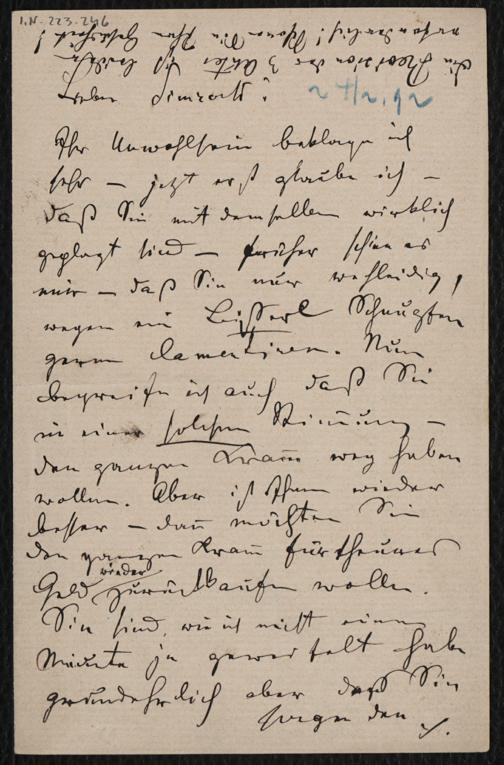 I.N. 223.246
Die Revision des 3 Aktes ist
Lieber Simrock!
2 4/2. 92
Ihr Unwohlsein beklage ich
sehr – jetzt erst glaube ich –
daß Sie mit demselben wirklich
geplagt sind – früher schien es
mir – daß Sie nur wehleidig,
wegen ein Bisserl Schnupfen
gerne lamentiren. Nun
begreife ich auch daß Sie
in einer solchen Stimmung –
den ganzen Kram weg haben
wollen. Aber ist Ihnen wieder
besser – dann möchten Sie
den ganzen Kram für theures
Geld wieder zurückkaufen wollen.
Sie sind, wie ich nicht eine
Minute je gezweifelt habe
grundehrlich aber daß Sie
sorgen den